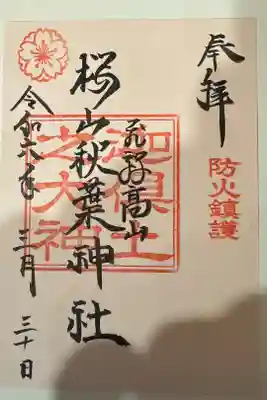 奉拝
防火鎮護
飛騨高山
迦倶土
之大神
桜山秋葉神社
令和六年三月三十日